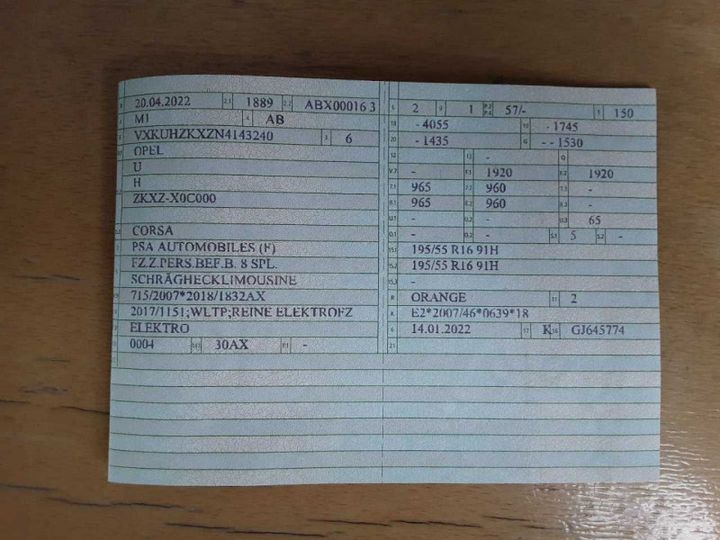 20.04.2022 1889 ABX00016 3
M1 AB
VXKUHZKXZN4143240 6
OPEL
U
H
ZKXZ-X0C000
CORSA
PSA AUTOMOBILES (F)
FZ.Z.PERS.BEF.B. 8 SPL.
SCHRÄGHECKLIMOUSINE
715/2007*2018/1832AX
2017/1151;WLTP;REINE ELEKTROFZ
ELEKTRO
0004 30AX -
2 1 57/- 150
- 4055 - 1745
- 1435 - - 1530
- -
- 1920 1920
965 960 -
965 960 -
- - 65
- - 5 -
195/55 R16 91H
195/55 R16 91H
-
ORANGE 2
E2*2007/46*0639*18
14.01.2022 K GJ645774